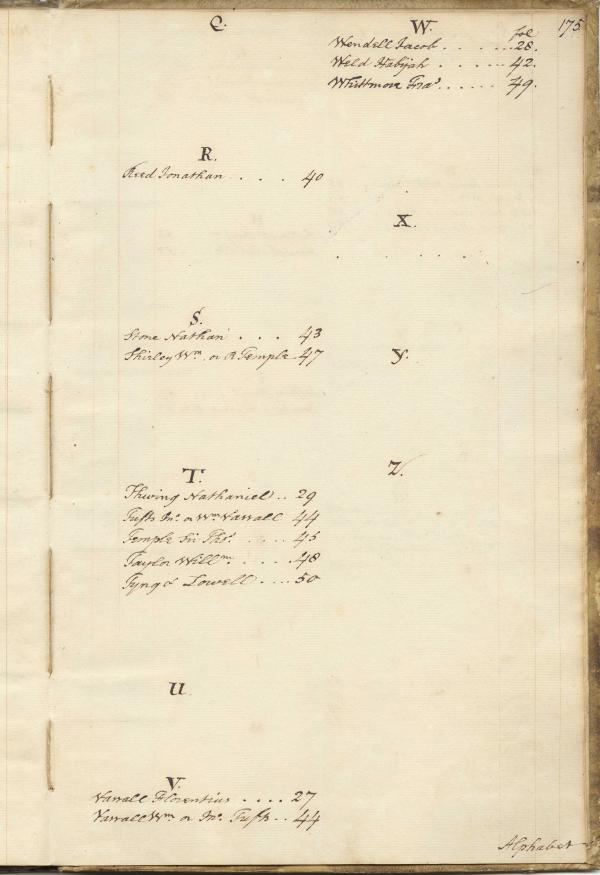 175
Q.
R.
Reed Jonathan . . . 40
S.
Stone Nathan . . . 43
Shirley Wm. or R Temple 47
T.
Thwing Nathaniel . . 29
Tufts Jno. or Wm Vassall 44
Temple Sir Thos. . . . . 45
Taylor Willm. . . . . 48
Tyng & Lowell . . . . 50
U
V.
Vassall Florentius . . . . 27
Vassall Wm or Jno. Tufts . . 44
W.
fol
Wendell Jacob . . . . . . 28.
Weld Habijah . . . . . . 42.
Whittmore Fras. . . . . . 49.
X.
Y.
Z.
Alphabet